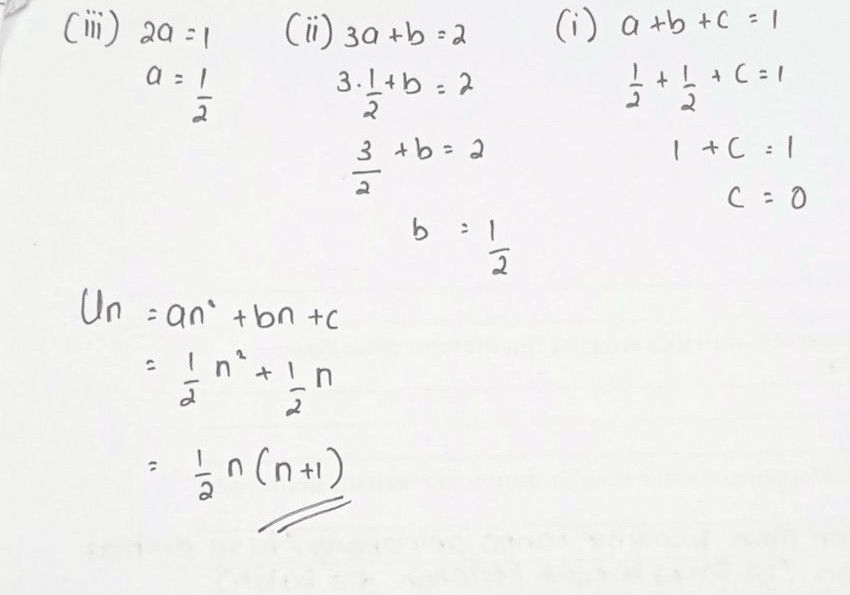 (iii) 2a = 1
a = 1/2
(ii) 3a + b = 2
3 · 1/2 + b = 2
3/2 + b = 2
b = 1/2
(i) a + b + c = 1
1/2 + 1/2 + c = 1
1 + c = 1
c = 0
Un = an² + bn + c
= 1/2 n² + 1/2 n
= 1/2 n (n+1)